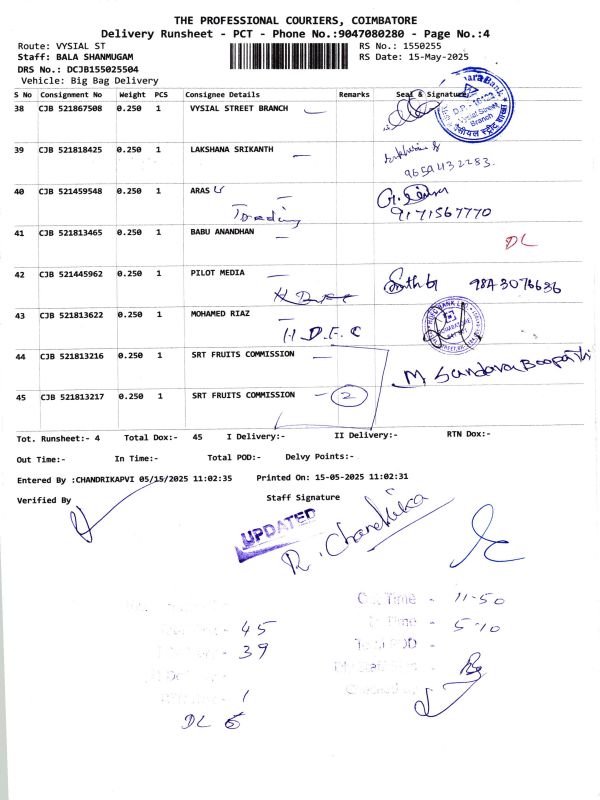 THE PROFESSIONAL COURIERS, COIMBATORE
Delivery Runsheet - PCT - Phone No.:9047080280 - Page No.:4
Route: VYSIAL ST RS No.: 1550255
Staff: BALA SHANMUGAM RS Date: 15-May-2025
DRS No.: DCJB155025504
Vehicle: Big Bag Delivery
S No Consignment No Weight PCS Consignee Details Remarks Seal & Signature
38 CJB 521867508 0.250 1 VYSIAL STREET BRANCH
Vysial Street
Branch
39 CJB 521818425 0.250 1 LAKSHANA SRIKANTH
9659432283
40 CJB 521459548 0.250 1 ARAS
Trading 9171567770
41 CJB 521813465 0.250 1 BABU ANANDHAN
DL
42 CJB 521445962 0.250 1 PILOT MEDIA
43 CJB 521813622 0.250 1 MOHAMED RIAZ
H.D.F.C
44 CJB 521813216 0.250 1 SRT FRUITS COMMISSION
M Sundara Boopathi
45 CJB 521813217 0.250 1 SRT FRUITS COMMISSION 2
Tot. Runsheet:- 4 Total Dox:- 45 I Delivery:- II Delivery:- RTN Dox:-
Out Time:- In Time:- Total POD:- Delvy Points:-
Entered By :CHANDRIKAPVI 05/15/2025 11:02:35 Printed On: 15-05-2025 11:02:31
Verified By Staff Signature
UPDATED
R. Chandrika
Time - 11-50
45 Time - 5-10
39 Total POD -
1
DL 5